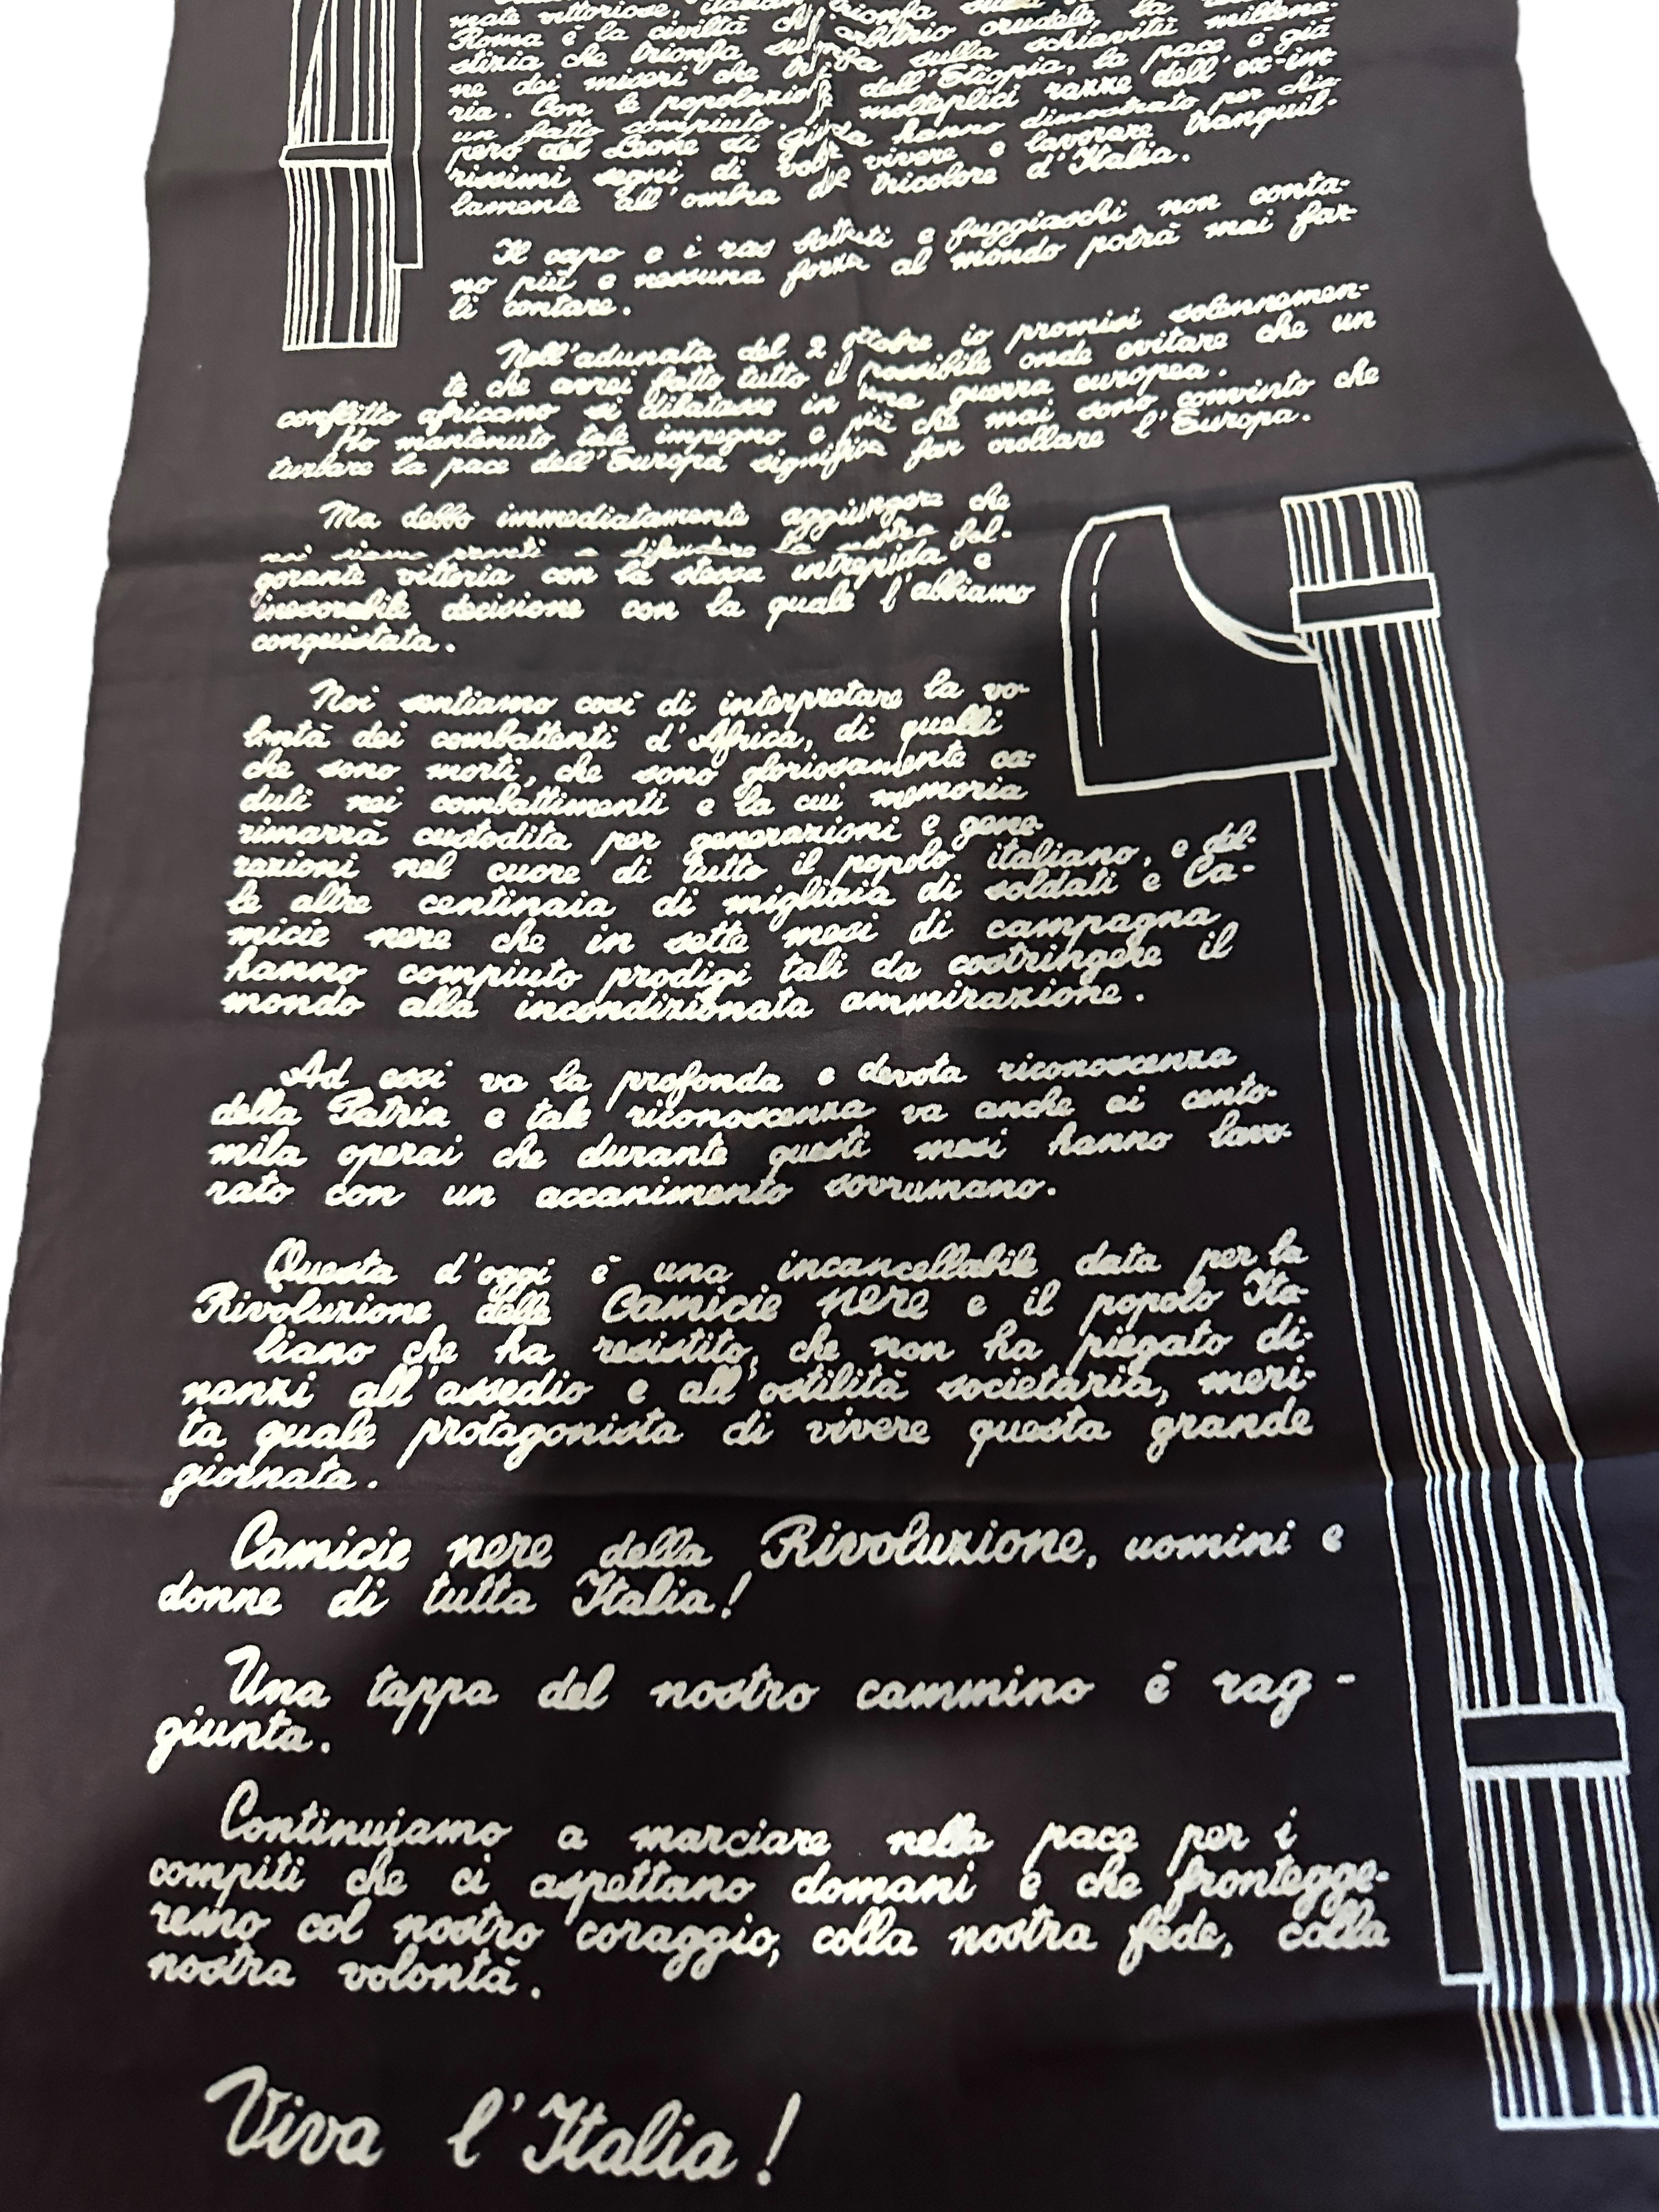 mate vittoriose,
Roma è la civiltà che
stizia che trionfa sull'arbitrio crudele, la
ne dei miseri che trionfa sulla schiavitù millena-
ria. Con le popolazioni dell'Etiopia, la pace è già
un fatto compiuto. Le molteplici razze dell'ex-im
pero del Leone di Giuda hanno dimostrato per chia-
rissimi segni di voler vivere e lavorare tranquil-
lamente all'ombra del tricolore d'Italia.
Il capo e i ras battuti e fuggiaschi non conta-
no più e nessuna forza al mondo potrà mai far-
li contare.
Nell'adunata del 2 ottobre io promisi solennemen-
te che avrei fatto tutto il possibile onde evitare che un
conflitto africano si dilatasse in una guerra europea.
Ho mantenuto tale impegno e più che mai sono convinto che
turbare la pace dell'Europa significa far crollare l'Europa.
Ma debbo immediatamente aggiungere che
noi siamo pronti a difendere la nostra fol-
gorante vittoria con la stessa intrepida e
inesorabile decisione con la quale l'abbiamo
conquistata.
Noi sentiamo così di interpretare la vo-
lontà dei combattenti d'Africa, di quelli
che sono morti, che sono gloriosamente ca-
duti nei combattimenti e la cui memoria
rimarrà custodita per generazioni e gene-
razioni nel cuore di tutto il popolo italiano, e del-
le altre centinaia di migliaia di soldati e Ca-
micie nere che in sette mesi di campagna
hanno compiuto prodigi tali da costringere il
mondo alla incondizionata ammirazione.
Ad essi va la profonda e devota riconoscenza
della Patria e tale riconoscenza va anche ai cento-
mila operai che durante questi mesi hanno lavo-
rato con un accanimento sovrumano.
Questa d'oggi è una incancellabile data per la
Rivoluzione delle Camicie nere e il popolo Ita-
liano che ha resistito, che non ha piegato di-
nanzi all'assedio e all'ostilità societaria, meri-
ta quale protagonista di vivere questa grande
giornata.
Camicie nere della Rivoluzione, uomini e
donne di tutta Italia!
Una tappa del nostro cammino è rag-
giunta.
Continuiamo a marciare nella pace per i
compiti che ci aspettano domani e che frontegge-
remo col nostro coraggio, colla nostra fede, colla
nostra volontà.
Viva l'Italia!